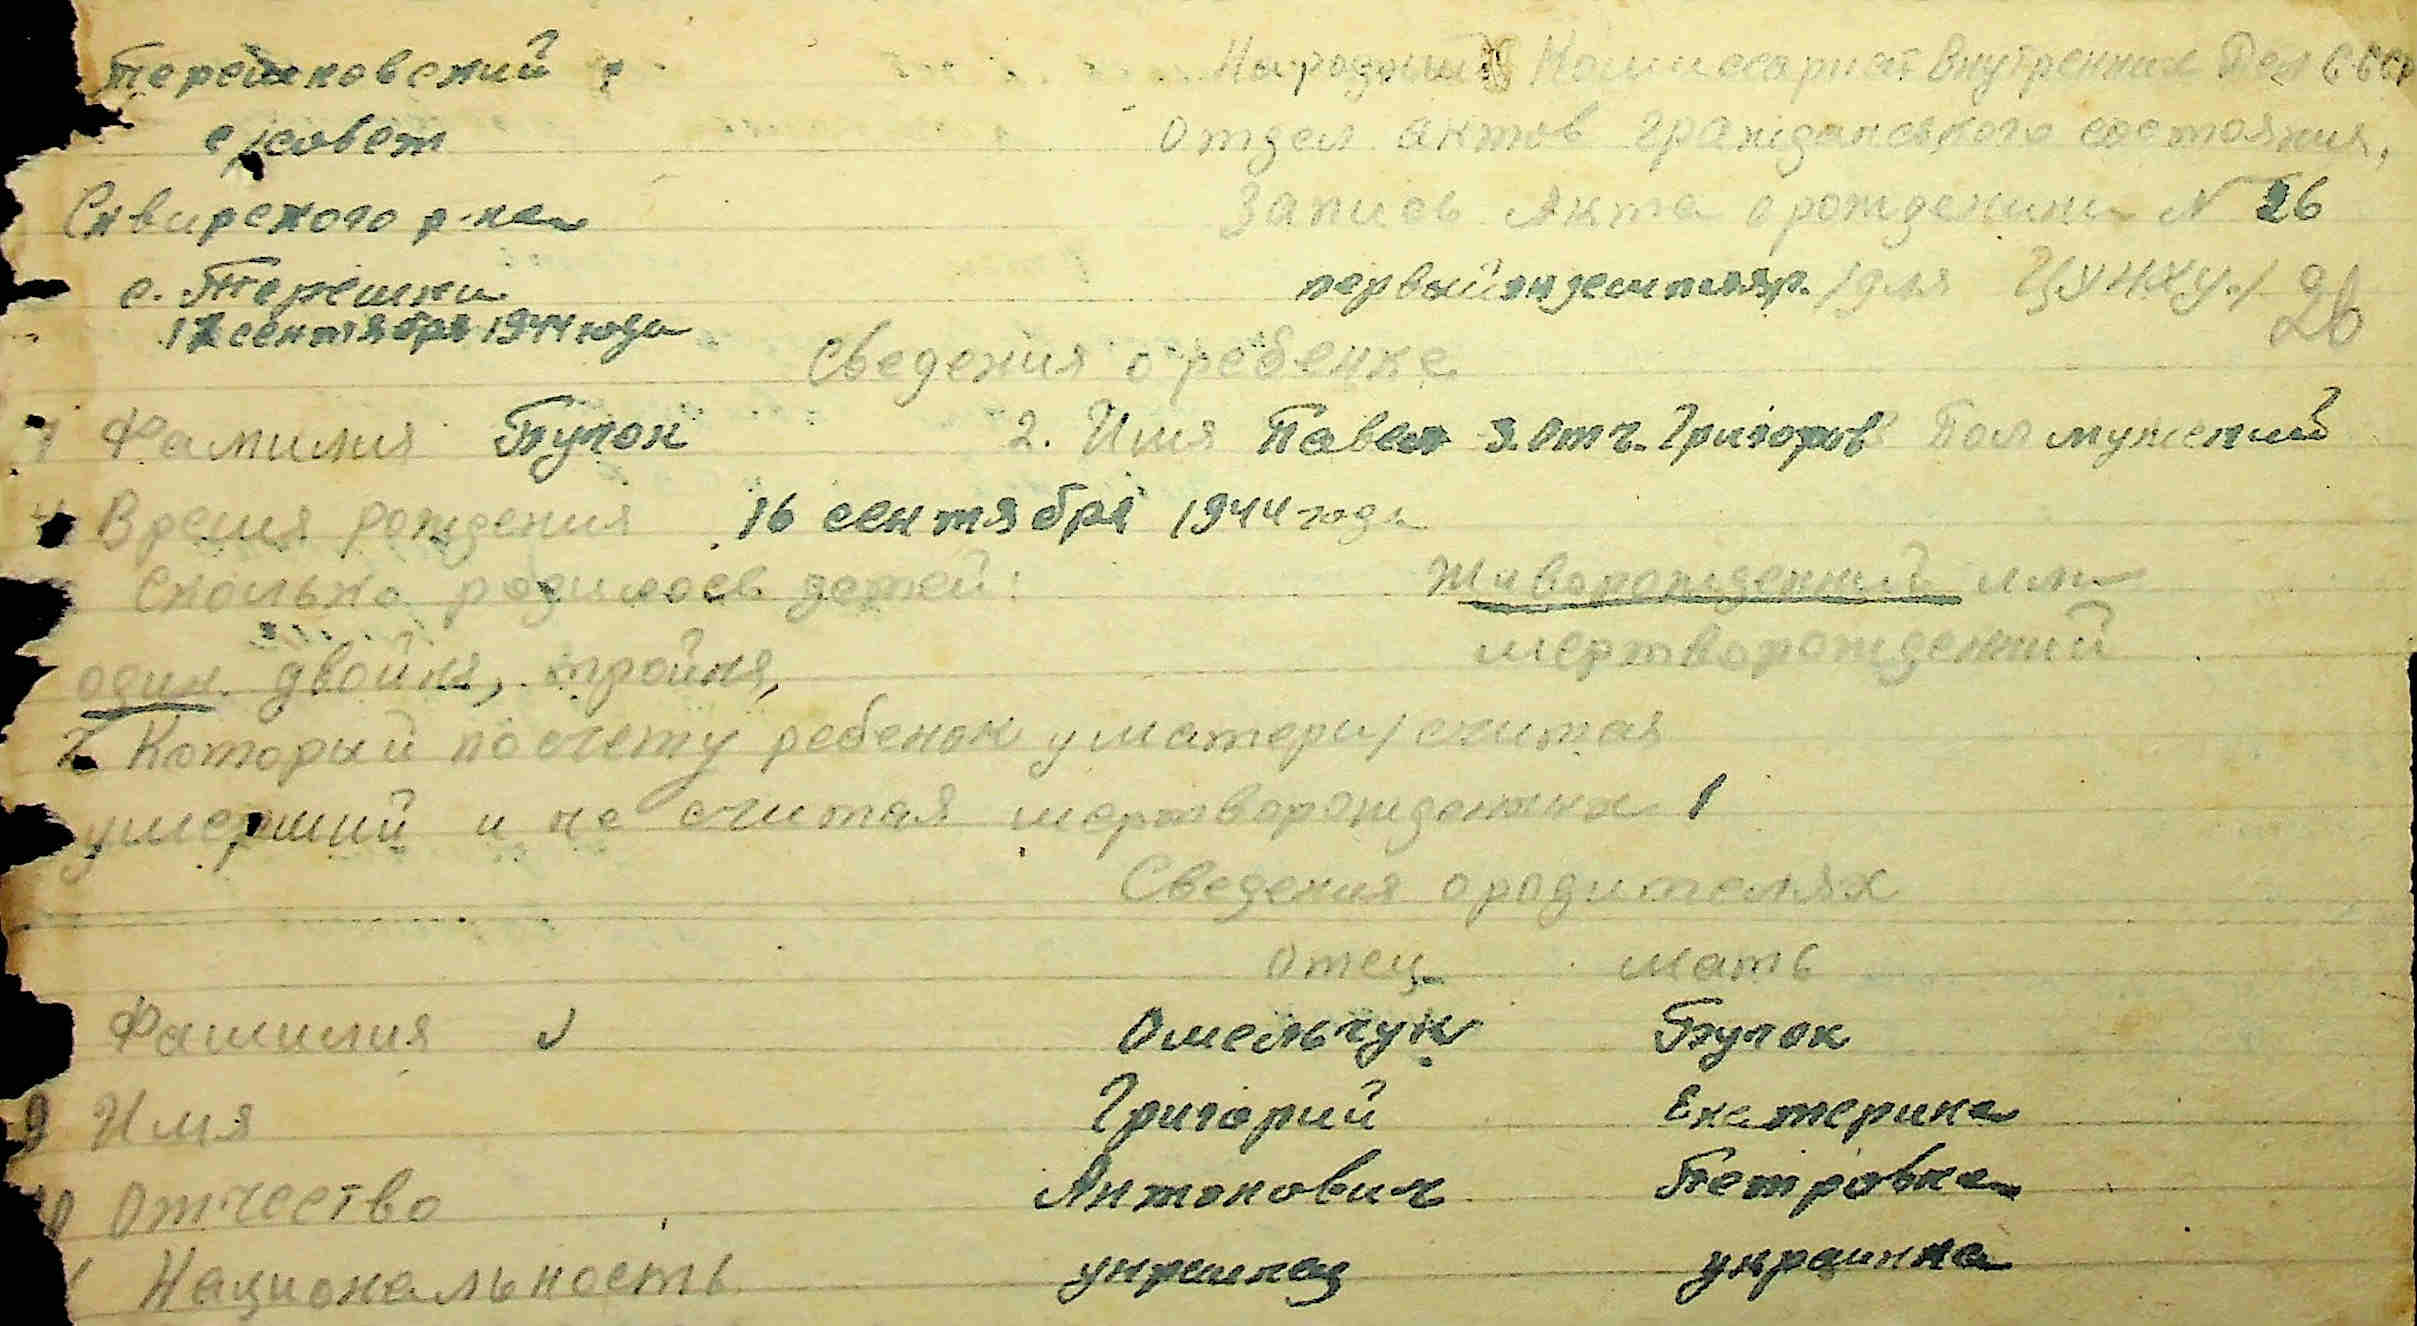 Терешковский
с/совет
Сквирского р-на
с. Терешки
17 сентября 1944 года
Народный Комиссариат Внутренних Дел СССР
Отдел актов гражданского состояния,
Запись Акта о рождении N 26
первый экземпляр. /для ЦУНХУ./ 26
Сведения о ребенке
1 Фамилия Пучок 2. Имя Павел 3. Отч. Григоров Пол мужский
4 Время рождения 16 сентября 1944 года
Сколько родилось детей: Живорожденный или
один двойня, тройня, мертворожденный
7 Который по счету ребенок у матери/считая
умерший и не считая мертворожденных 1
Сведения о родителях
Отец мать
Фамилия Омельчук Пучок
9 Имя Григорий Екатерина
10 Отчество Антонович Петровна
Национальность украинец украинка